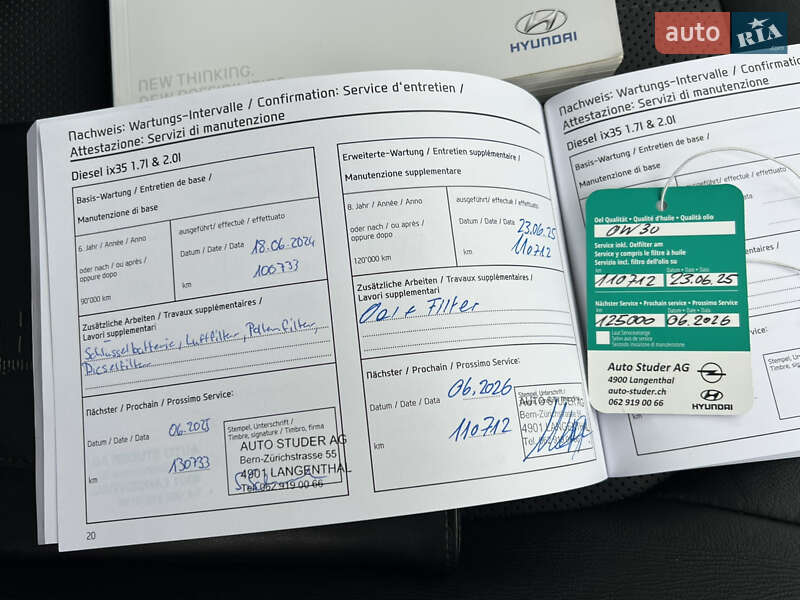 auto RIA
HYUNDAI
NEW THINKING.
Nachweis: Wartungs-Intervalle / Confirmation: Service d'entretien /
Attestazione: Servizi di manutenzione
Diesel ix35 1.7l & 2.0l
Basis-Wartung / Entretien de base /
Manutenzione di base
6. Jahr / Année / Anno
oder nach / ou après /
oppure dopo
90'000 km
ausgeführt/ effectué / effettuato
Datum / Date / Data 18.06.2024
100733
km
Zusätzliche Arbeiten / Travaux supplémentaires /
Lavori supplementari
Schlüsselbatterie, Luftfilter, Pollenfilter,
Dieselfilter
Nächster / Prochain / Prossimo Service:
Datum / Date / Data 06.2025
km 130733
Stempel, Unterschrift /
Timbre, signature / Timbro, firma
AUTO STUDER AG
Bern-Zürichstrasse 55
4901 LANGENTHAL
Tel. 062 919 00 66
20
Erweiterte-Wartung / Entretien supplémentaire /
Manutenzione supplementare
8. Jahr / Année / Anno
oder nach / ou après /
oppure dopo
120'000 km
ausgeführt/ effectué / effettuato
Datum / Date / Data 23.06.25
km 110712
Zusätzliche Arbeiten / Travaux supplémentaires /
Lavori supplementari
Oel + Filter
Nächster / Prochain / Prossimo Service:
Datum / Date / Data 06.2026
km 110712
Stempel, Unterschrift /
AUTO STUDER AG
Bern-Zürichstrasse
4901 LANGENTHAL
Nachweis: Wartungs-Intervalle / Confirmation:
Attestazione: Servizi di manutenzione
Diesel ix35 1.7l & 2.0l
Basis-Wartung / Entretien de base /
Manutenzione di base
Oel Qualität • Qualité d'huile • Qualità olio
0W30
Service inkl. Oelfilter am
Service y compris le filtre à huile
Servizio incl. filtro dell'olio su
km Datum • Date • Data
110712 23.06.25
Nächster Service • Prochain service • Prossimo Service
km Datum • Date • Data
125000 06.2026
Laut Serviceanzeige
Selon avis de service
Secondo indicazione di manutenzione
Auto Studer AG
4900 Langenthal
auto-studer.ch
062 919 00 66
HYUNDAI